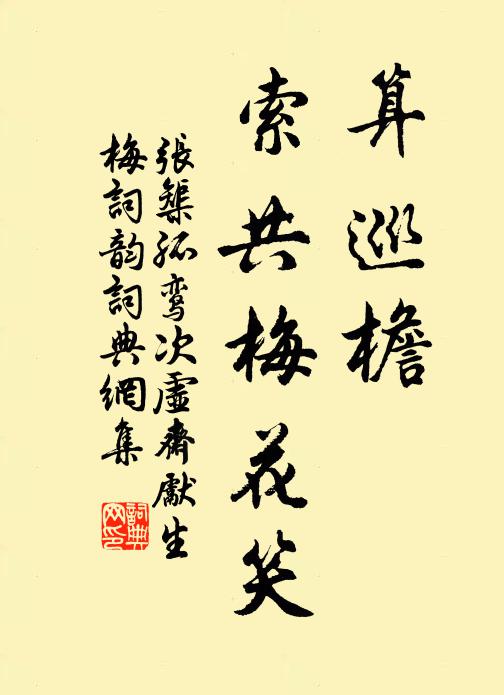 算巡檐
索共梅花笑
張榘孤鸾次虛齋獻生
梅詞韵詞典網集
詞典
网印